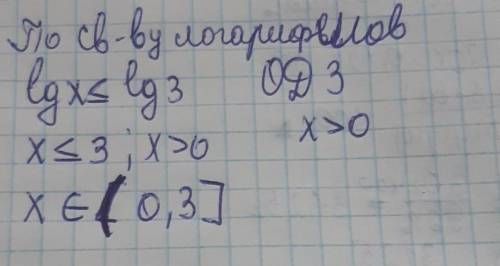 По св-ву логарифмов
lgx≤ lg3 ОДЗ
x>0
x≤3; x>0
x∈(0,3]